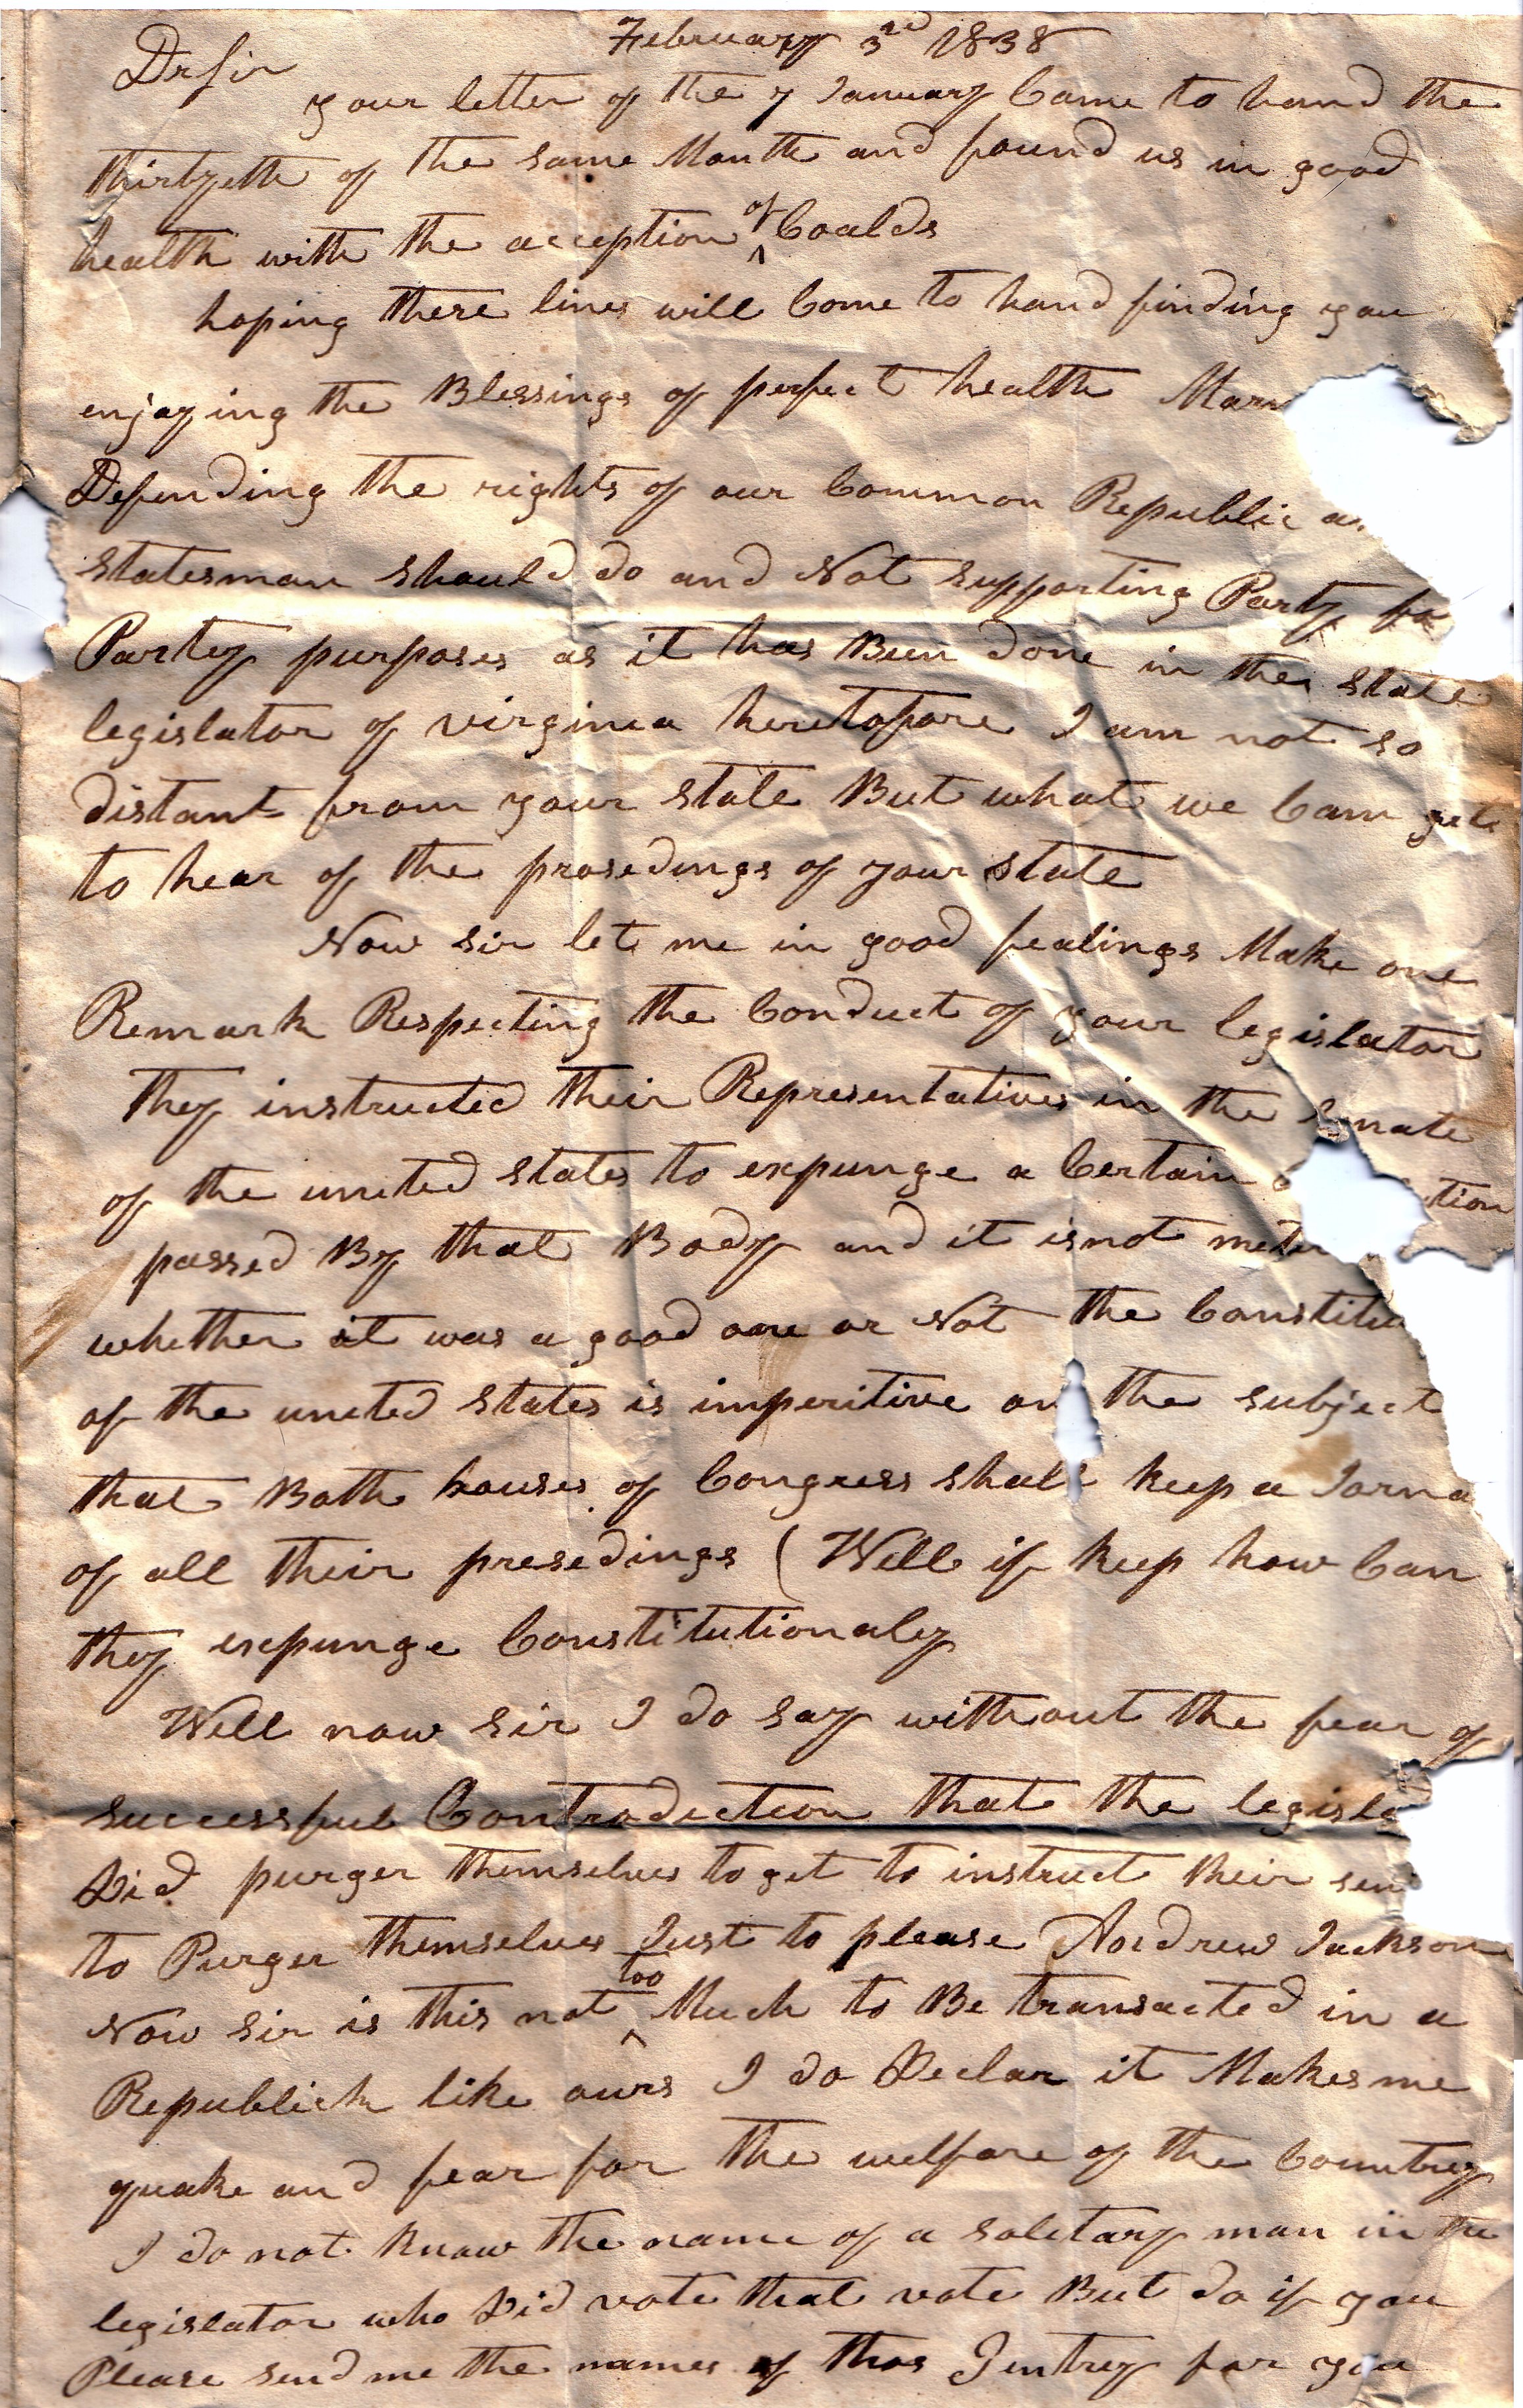 February 3rd 1838
Dr Sir
your letter of the 7 January Came to hand the
thirtyeth of the same Month and found us in good
health with the acception of Coalds
hoping these lines will Come to hand finding you
enjoying the Blessings of perfect health
Defending the rights of our Common Republic as
statesman should do and Not supporting Party
Party purposes as it has Been done in the state
legislator of virginia heretofore I am not so
distant from your state But what we Can get
to hear of the prosedings of your state
Now sir let me in good fealings Make one
Remark Respecting the Conduct of your legislator
they instructed their Representatives in the Senate
of the united states to expunge a Certain
passed By that Body and it is not
whether it was a good one or Not the Constitu
of the united states is imperitive on the subject
that Both houses of Congress shall keep a Jorna
of all their presedings ( Well if keep how Can
they expunge Constitutionaly
Well now sir I do say without the fear of
successful Contradiction that the legisla
Did purger themselves to get to instruct their sen
to Purger themselves Just to please Andrew Jackson
Now sir is this not too Much to Be transacted in a
Republick like ours I do Declar it Makes me
quake and fear for the welfare of the Country
I do not know the name of a solitary man in the
legislator who Did vote that vote But do if you
Please send me the names of thos Jentrey for you